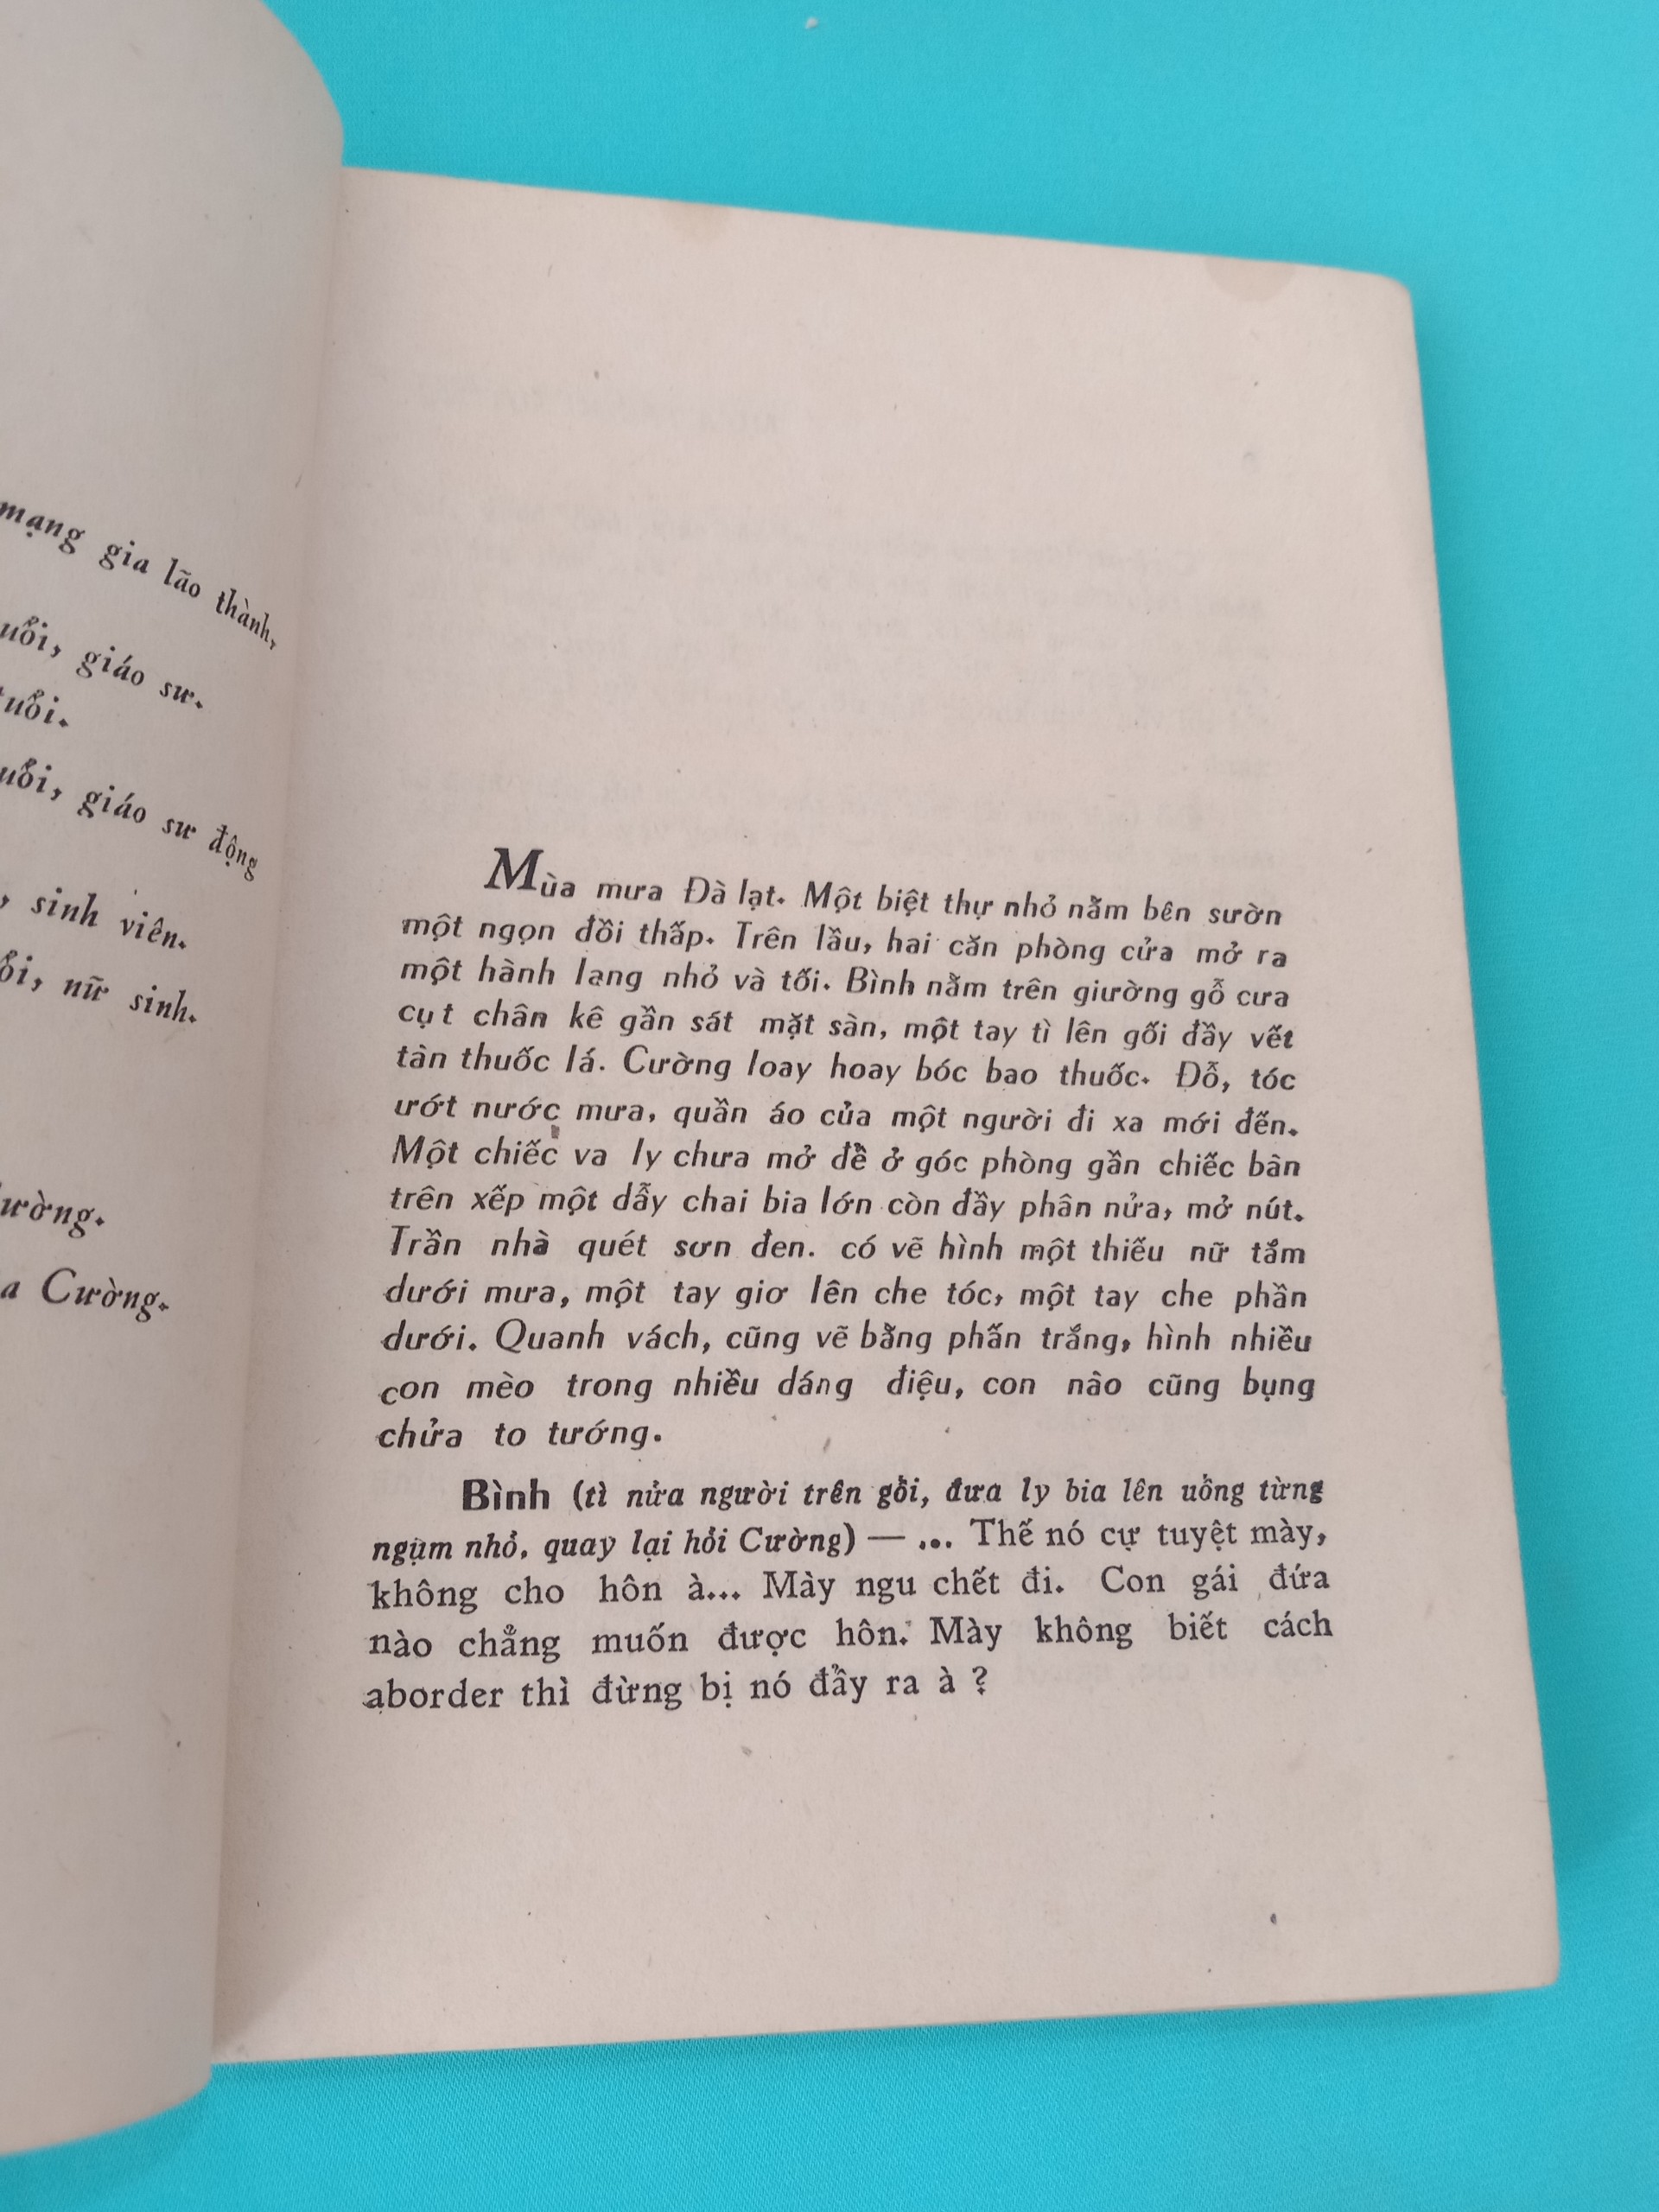 mạng gia lão thành,
giáo sư.
giáo sư động
sinh viên.
nữ sinh.
Cường.
Mùa mưa Đà lạt. Một biệt thự nhỏ nằm bên sườn
một ngọn đồi thấp. Trên lầu, hai căn phòng cửa mở ra
một hành lang nhỏ và tối. Bình nằm trên giường gỗ cưa
cụt chân kê gần sát mặt sàn, một tay tì lên gối đầy vết
tàn thuốc lá. Cường loay hoay bóc bao thuốc. Đỗ, tóc
ướt nước mưa, quần áo của một người đi xa mới đến.
Một chiếc va ly chưa mở để ở góc phòng gần chiếc bàn
trên xếp một dẫy chai bia lớn còn đầy phân nửa, mở nút.
Trần nhà quét sơn đen. có vẽ hình một thiếu nữ tắm
dưới mưa, một tay giơ lên che tóc, một tay che phần
dưới. Quanh vách, cũng vẽ bằng phấn trắng, hình nhiều
con mèo trong nhiều dáng điệu, con nào cũng bụng
chửa to tướng.
Bình (tì nửa người trên gối, đưa ly bia lên uống từng
ngụm nhỏ, quay lại hỏi Cường) — ... Thế nó cự tuyệt mày,
không cho hôn à... Mày ngu chết đi. Con gái đứa
nào chẳng muốn được hôn. Mày không biết cách
aborder thì đừng bị nó đẩy ra à ?